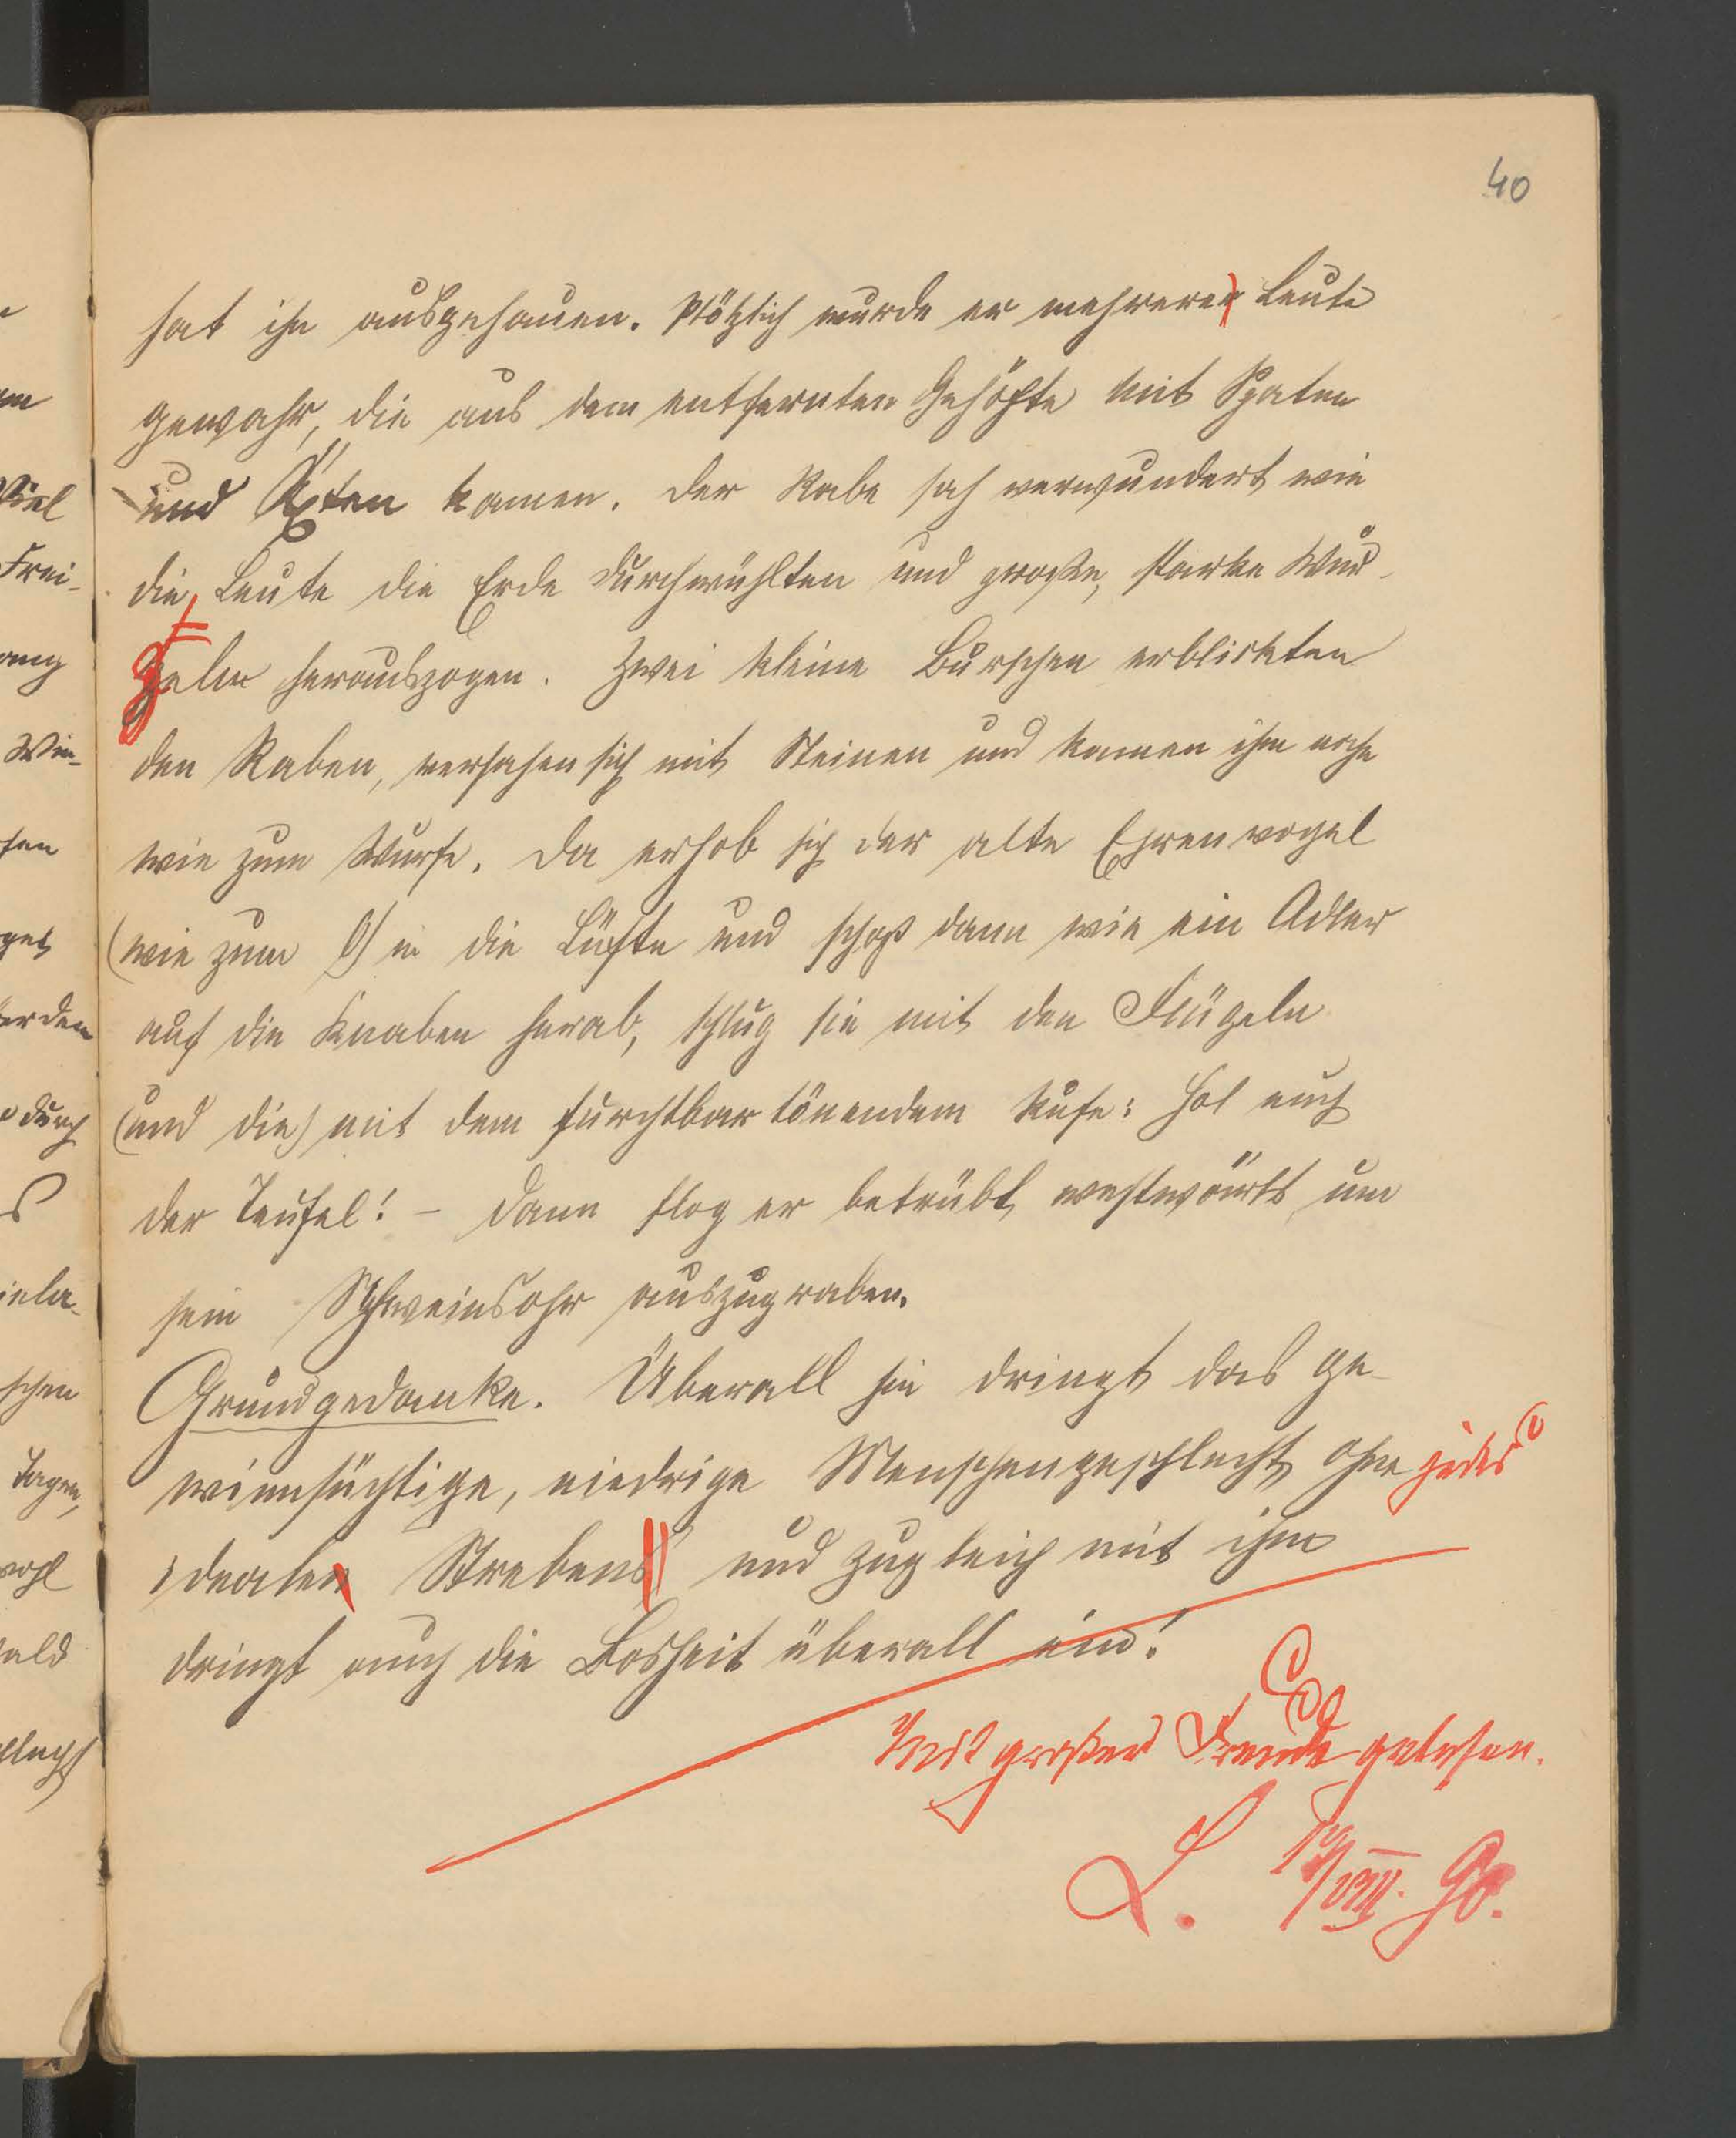 40
hat ihn ausgehauen. Plötzlich wurde er mehrerer Leute
gewahr, die aus dem entfernten Gehöfte mit Spaten
und Äxten kamen. Der Rabe sah verwundert wie
die Leute die Erde durchwühlten und große, starke Wur-
zeln herauszogen. Zwei kleine Burschen erblickten
den Raben, versahen sich mit Steinen und kamen ihm nahe
wie zum Wurfe. Da erhob sich der alte Ehrenvogel
(wie zum G) in die Lüfte und schoß dann wie ein Adler
auf die Knaben herab, schlug sie mit den Flügeln
(und die) mit dem furchtbar tönendem Rufe: Hol euch
der Teufel! – Dann flog er betrübt westwärts um
sein Schweinsohr auszugraben.
Grundgedanke. Überall hin dringt das ge-
winnsüchtige, niedrige Menschengeschlecht ohne jedes
idealen Strebens und zugleich mit ihm
dringt auch die Bosheit überall ein!
Mit großer Freude gelesen.
L. /VIII. 90.